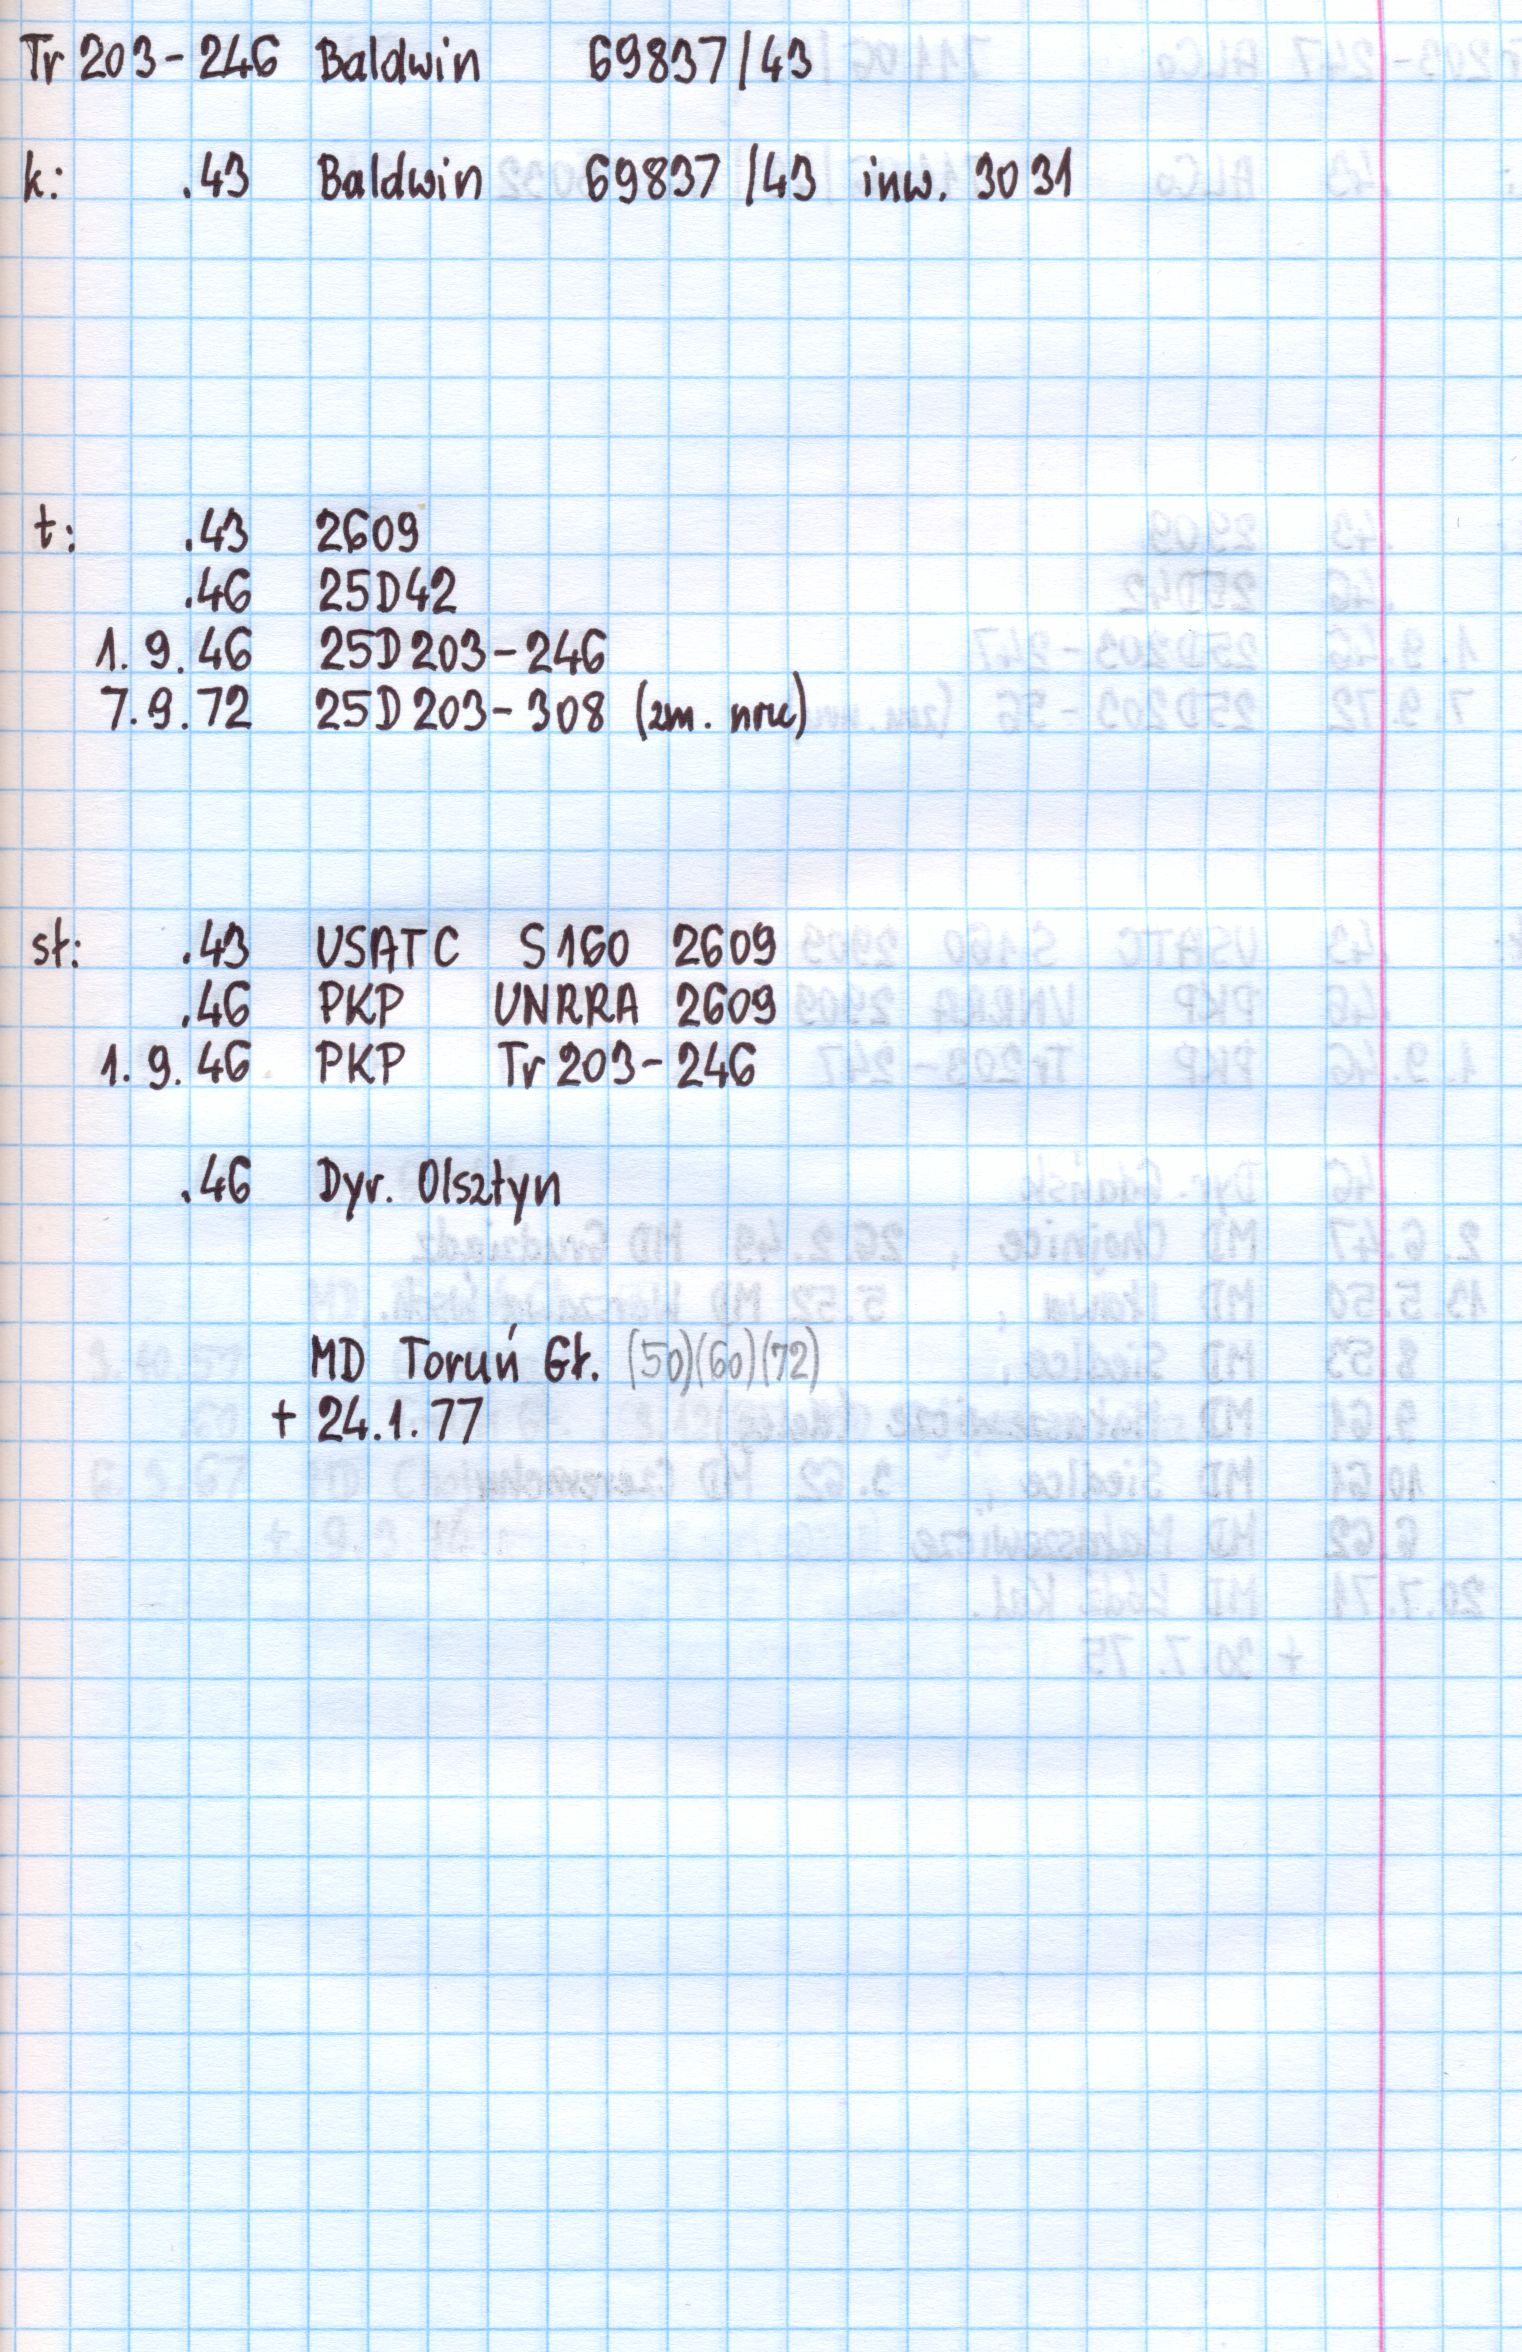 Tr 203-246 Baldwin 69837/43
k: .43 Baldwin 69837/43 inw. 3031
t: .43 2609
.46 25D42
1.9.46 25D203-246
7.9.72 25D203-308 (zm. nru)
sł: .43 USATC S160 2609
.46 PKP UNRRA 2609
1.9.46 PKP Tr 203-246
.46 Dyr. Olsztyn
MD Toruń Gł. (50)(60)(72)
+ 24.1.77